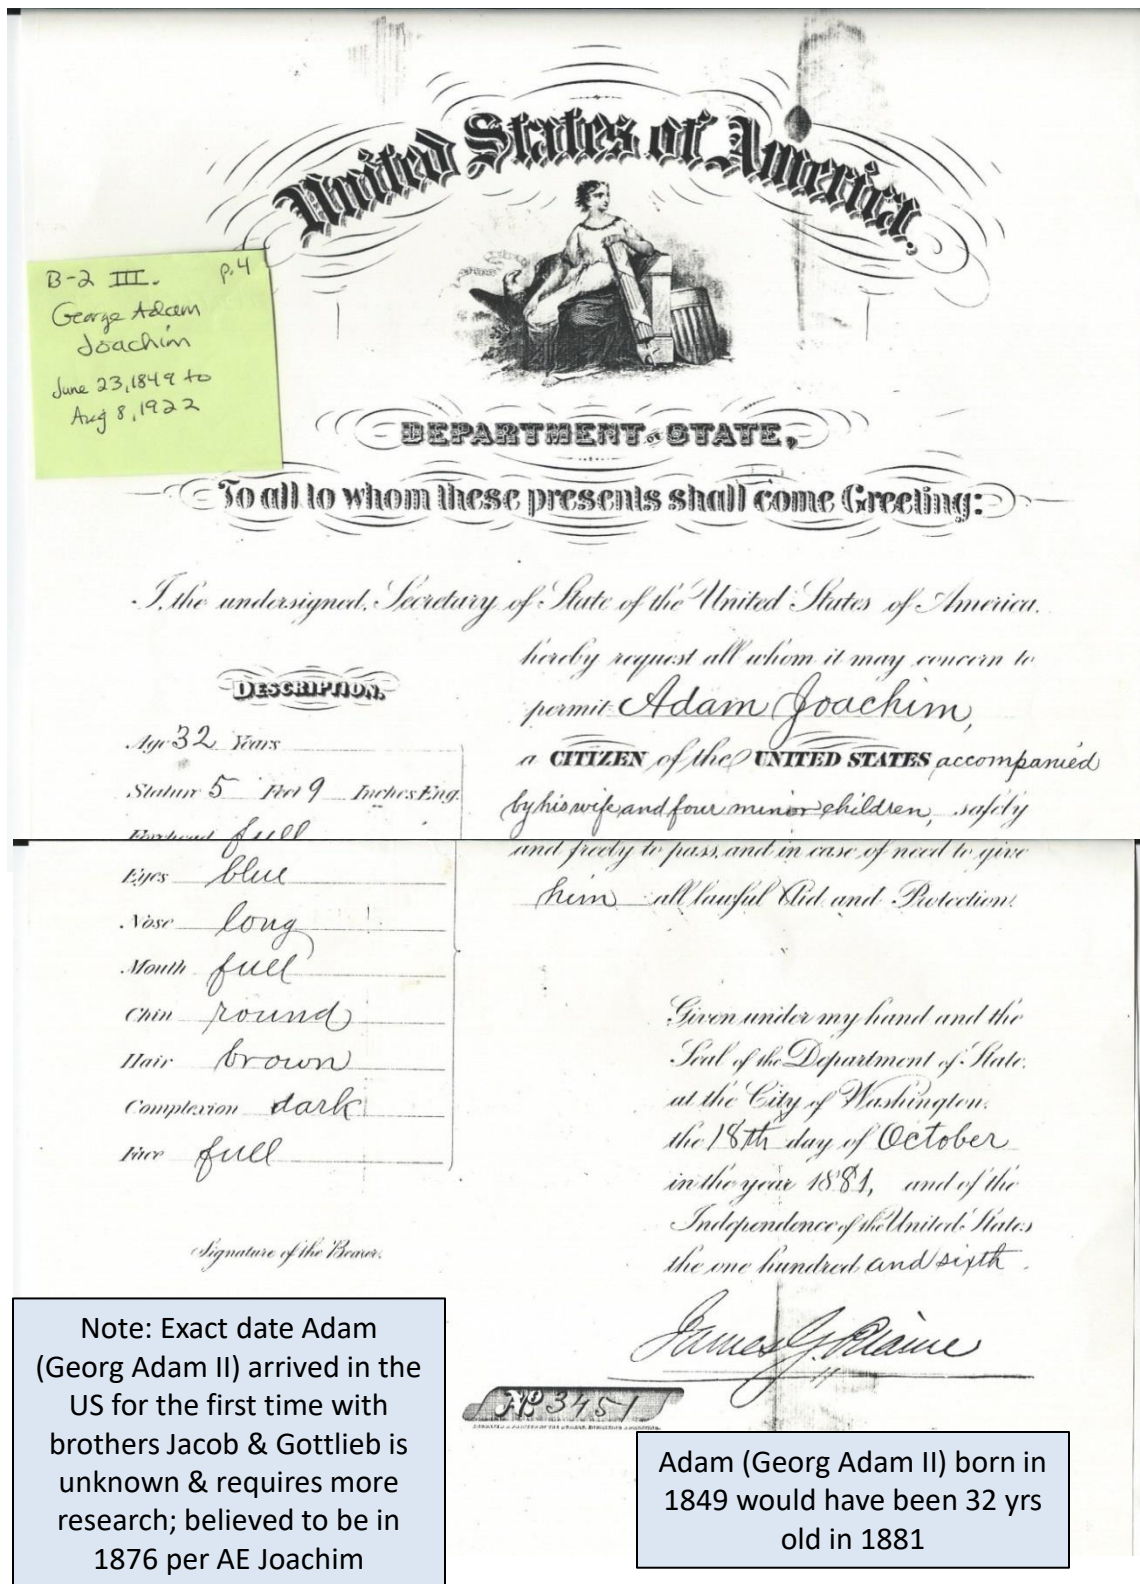 United States of America,
B-2 III. p.4
George Adam
Joachim
June 23, 1849 to
Aug 8, 1922
DEPARTMENT OF STATE,
To all to whom these presents shall come Greeting:
I, the undersigned, Secretary of State of the United States of America,
hereby request all whom it may concern to
permit Adam Joachim,
a CITIZEN of the UNITED STATES accompanied
by his wife and four minor children, safely
and freely to pass, and in case of need to give
him all lawful Aid and Protection.
DESCRIPTION,
Age 32 Years
Stature 5 Feet 9 Inches Eng.
Forehead full
Eyes blue
Nose long
Mouth full
Chin round
Hair brown
Complexion dark
Face full
Signature of the Bearer.
Given under my hand and the
Seal of the Department of State,
at the City of Washington,
the 18th day of October
in the year 1881, and of the
Independence of the United States
the one hundred and sixth.
James G. Blaine
No 3451
Note: Exact date Adam
(Georg Adam II) arrived in the
US for the first time with
brothers Jacob & Gottlieb is
unknown & requires more
research; believed to be in
1876 per AE Joachim
Adam (Georg Adam II) born in
1849 would have been 32 yrs
old in 1881